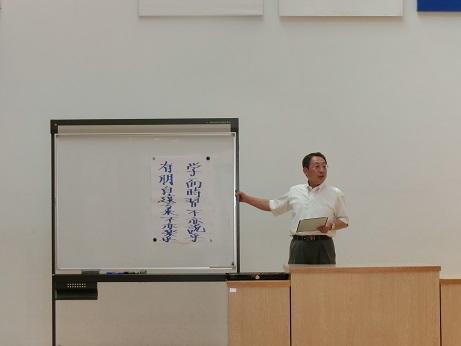 学而時習不亦説乎
有朋自遠来不亦楽乎